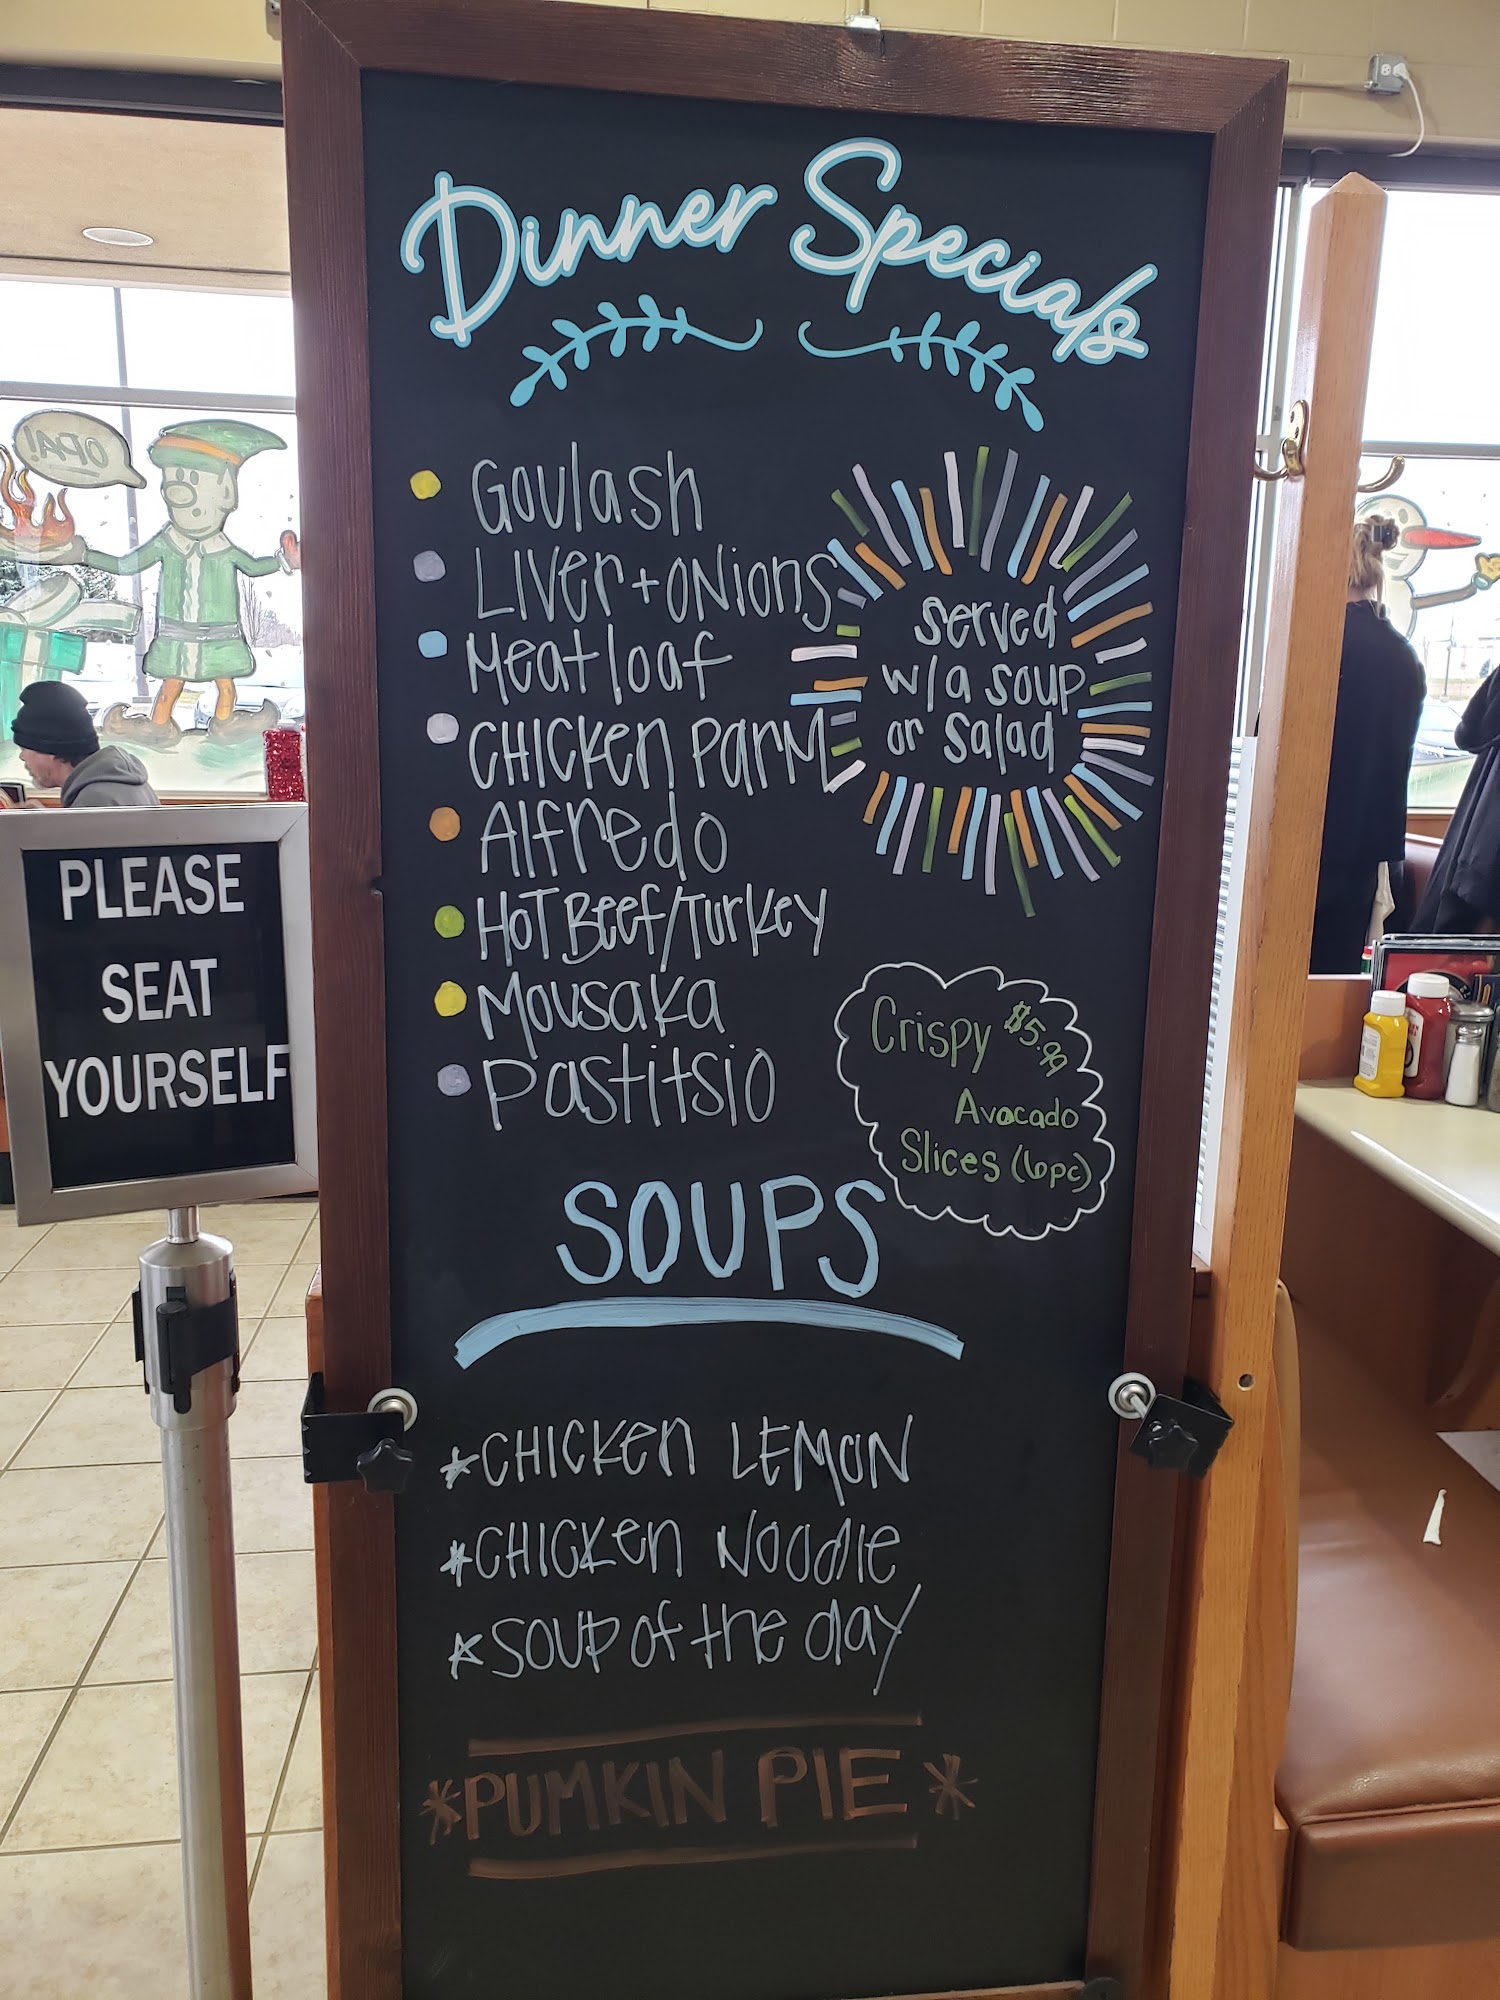 Dinner Specials
Goulash
Liver + Onions
Meatloaf
Chicken Parm
Alfredo
Hot Beef/Turkey
Mousaka
Pastitsio
served
w/a soup
or salad
Crispy $5.99
Avocado
Slices (6pc)
SOUPS
*CHICKEN LEMON
*CHICKEN NOODLE
*SOUP of the day
*PUMKIN PIE*
PLEASE
SEAT
YOURSELF
OPA!